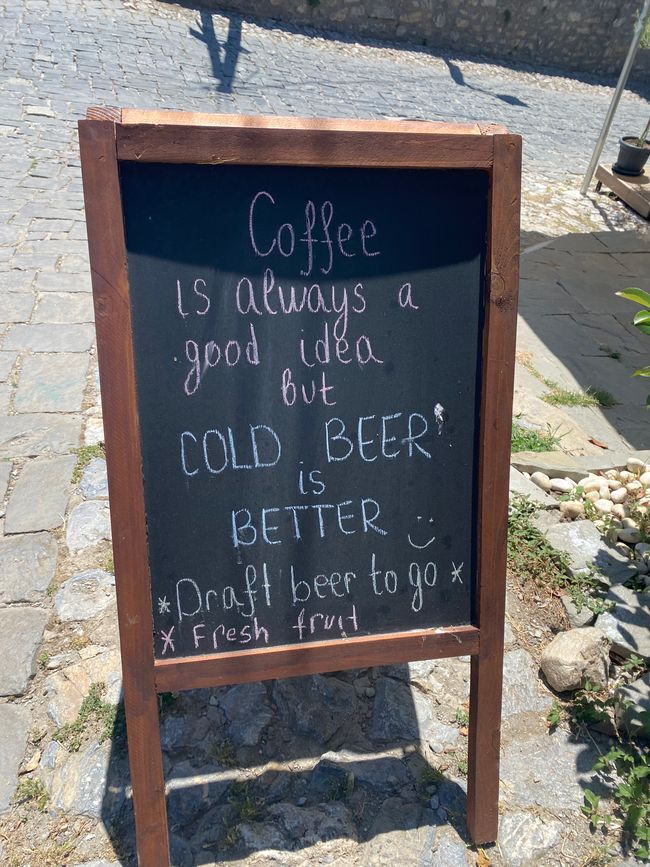 Coffee
is always a
good idea
But
COLD BEER
is
BETTER :)
*Draft beer to go *
* Fresh fruit